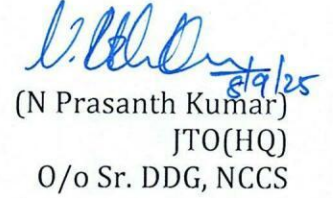 8/9/25
(N Prasanth Kumar)
JTO(HQ)
O/o Sr. DDG, NCCS